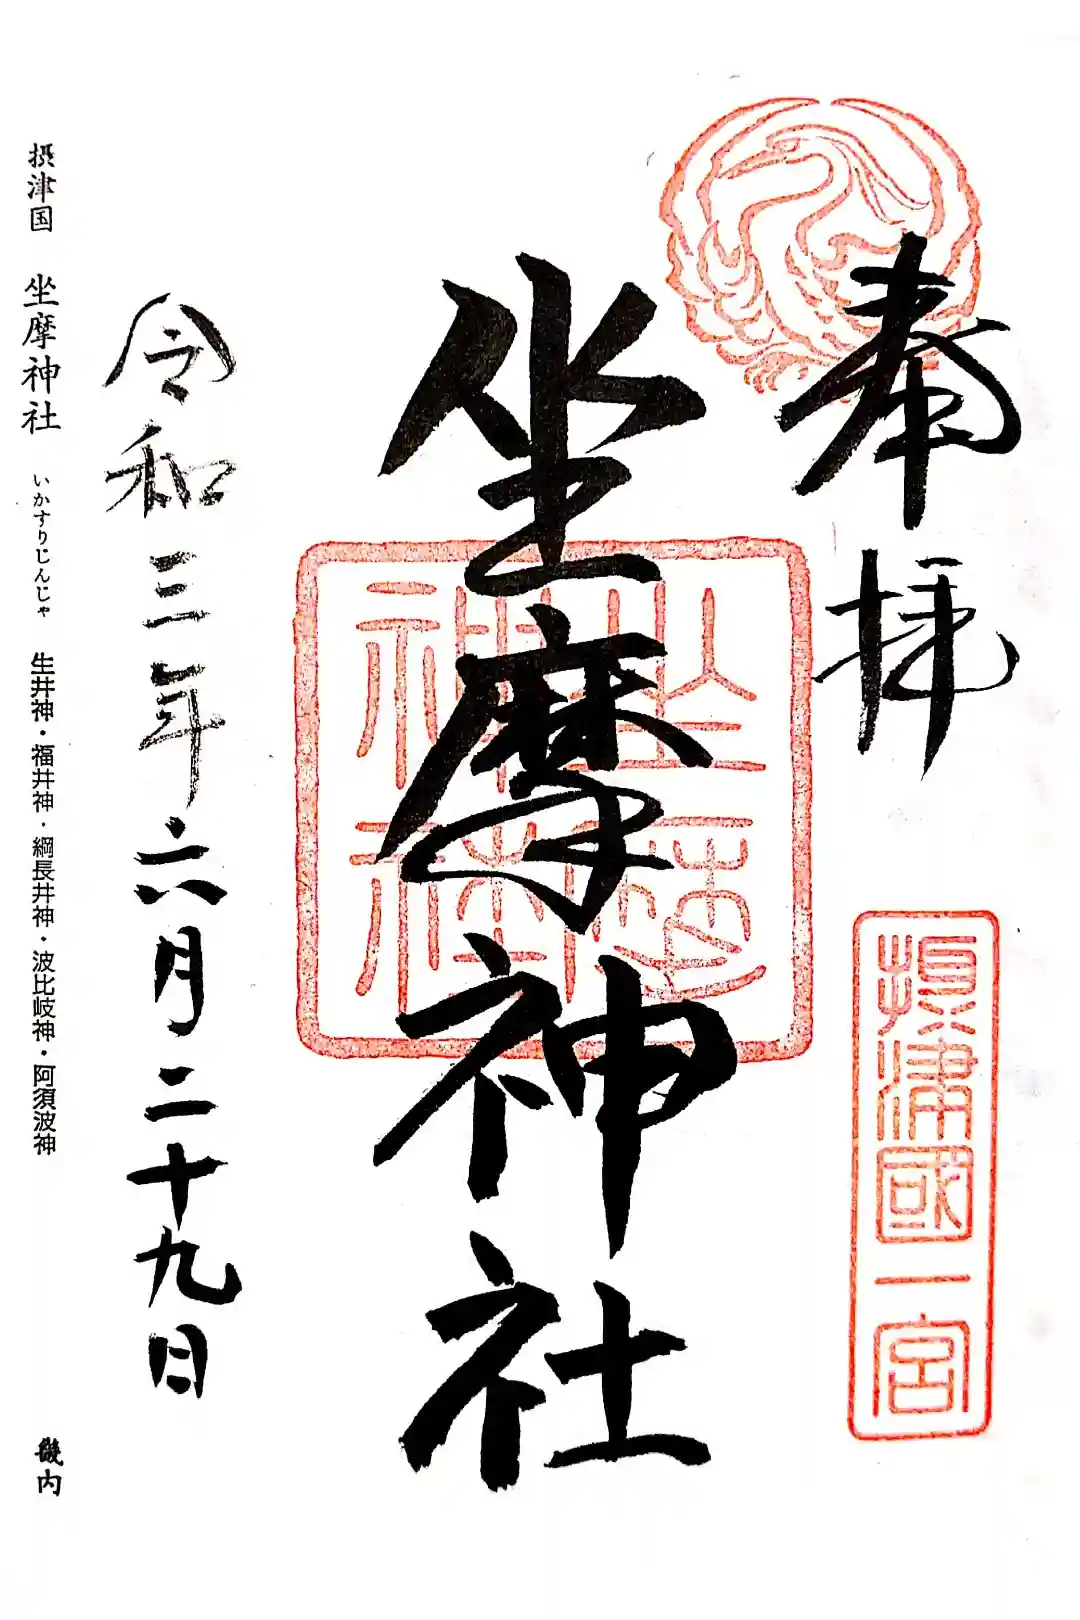 奉拝
摂津國一宮
坐摩神社
令和三年六月二十九日
摂津国 坐摩神社 いかすりじんじゃ 生井神・福井神・綱長井神・波比岐神・阿須波神 畿内